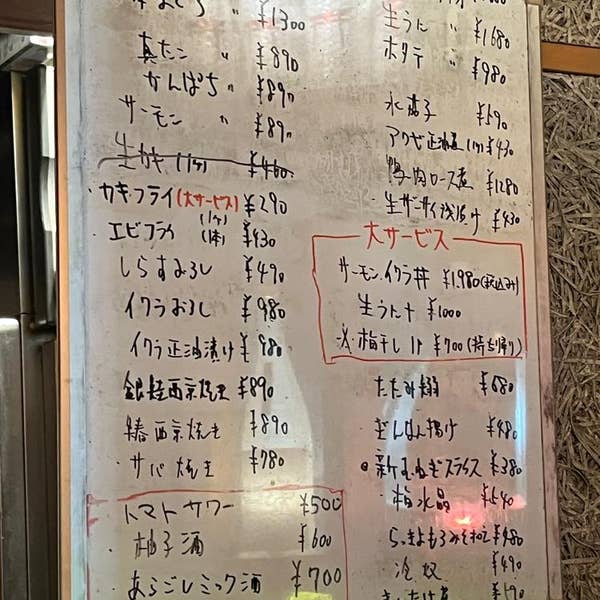 ¥1300
真たこ 〃 ¥890
かんぱち 〃 ¥890
サーモン 〃 ¥890
生カキ(1ヶ) ¥400
・カキフライ(大サービス) ¥290
(1ヶ)
・エビフライ(1本) ¥430
しらすおろし ¥490
イクラおろし ¥980
イクラ正油漬け ¥980
銀鮭西京焼き ¥890
西京焼き ¥890
・サバ焼き ¥780
トマトサワー ¥500
・柚子酒 ¥600
・あらごしミック酒 ¥700
生うに 〃 ¥1680
ホタテ 〃 ¥980
水茄子 ¥590
¥430
鴨肉ロース煮 ¥1280
・生ザーサイ浅漬け ¥430
大サービス
サーモン、イクラ丼 ¥1,980(税込み)
生うに ¥1000
梅干し ¥700(持ち帰り)
たたみ鰯 ¥680
ぎんなん揚け ¥480
新玉ねぎスライス ¥380
・梅水晶 ¥540
らっきょもろみそ ¥480
・冷奴 ¥490